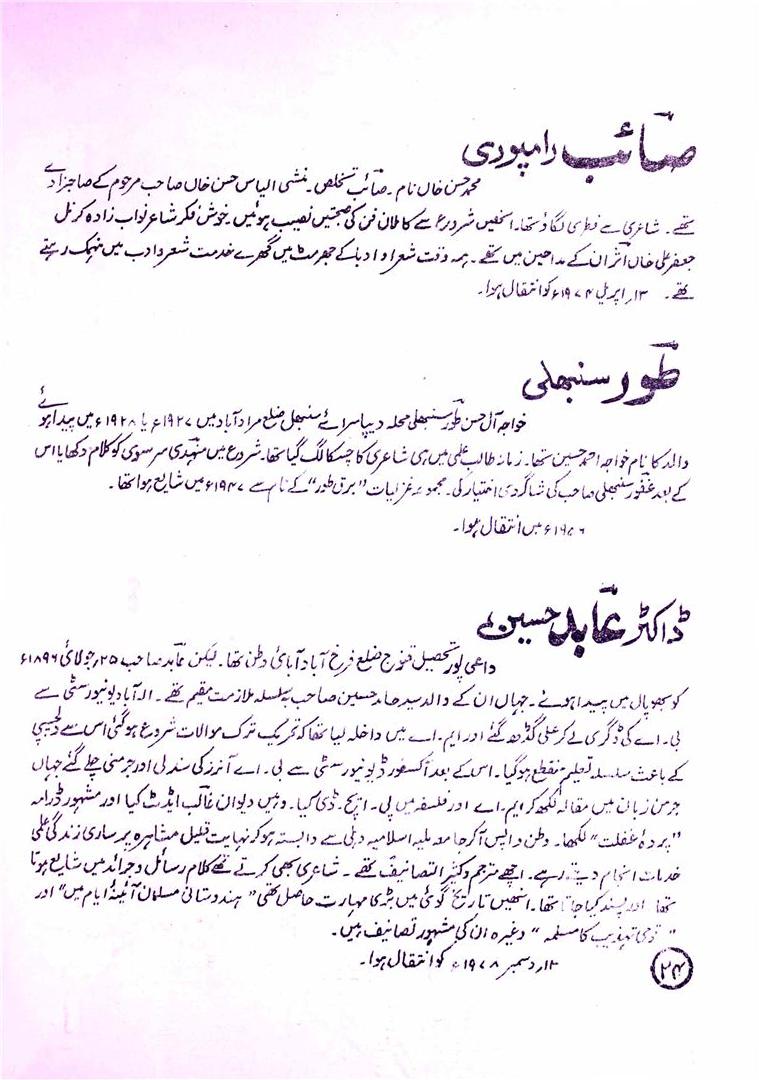 صائبؔ رامپوری
محمد حسن خاں نام ۔ صائبؔ تخلص ۔ منشی الیاس حسن خاں صاحب مرحوم کے صاحبزادے
تھے ۔ شاعری سے فطری لگاؤ تھا۔ انھیں شروع سے کاملانِ فن کی صحبتیں نصیب ہوئیں۔ خوش فکر شاعر نواب زادہ کرنل
جعفر علی خاں اثرؔ ان کے مداحین میں تھے ۔ ہمہ وقت شعراء و ادبا کے جھرمٹ میں گھرے خدمت شعر و ادب میں منہمک رہتے
تھے ۔ ۱۳؍ اپریل ۱۹۷۴ء کو انتقال ہوا۔
طورؔ سنبھلی
خواجہ آل حسن طورؔ سنبھلی محلہ دیپا سرائے سنبھل ضلع مراد آباد میں ۱۹۲۷ء یا ۱۹۲۸ء میں پیدا ہوئے
والد کا نام خواجہ احمد حسین تھا۔ زمانہ طالب علمی میں ہی شاعری کا چسکا لگ گیا تھا۔ شروع میں مہدیؔ سرسوی کو کلام دکھایا اس
کے بعد غفورؔ سنبھلی صاحب کی شاگردی اختیار کی۔ مجموعہ غزلیات "برق طور" کے نام سے ۱۹۴۷ء میں شایع ہوا تھا۔
میں انتقال ہوا۔
ڈاکٹر عابدؔ حسین
داعی پور تحصیل قنوج ضلع فرخ آباد آبائی وطن تھا ۔ لیکن عابدؔ صاحب ۲۵؍ جولائی ۱۸۹۶ء
کو بھوپال میں پیدا ہوئے ۔ جہاں ان کے والد سید حامد حسین صاحب بہ سلسلہ ملازمت مقیم تھے ۔ الہ آباد یونیورسٹی سے
بی ۔ اے کی ڈگری لے کر علی گڈھ گئے اور ایم ۔ اے میں داخلہ لیا تھا کہ تحریک ترک موالات شروع ہو گئی اس سے دلچسپی
کے باعث سلسلہ تعلیم منقطع ہو گیا ۔ اس کے بعد آکسفورڈ یونیورسٹی سے بی ۔ اے آنرز کی سند لی اور جرمنی چلے گئے جہاں
جرمن زبان میں مقالہ لکھ کر ایم ۔ اے اور فلسفہ میں پی ۔ ایچ ۔ ڈی کیا۔ وہیں دیوان غالبؔ ایڈٹ کیا اور مشہور ڈرامہ
"پردۂ غفلت" لکھا ۔ وطن واپس آ کر جامعہ ملیہ اسلامیہ دہلی سے وابستہ ہو کر نہایت قلیل مشاہرہ پر ساری زندگی علمی
خدمات انجام دیتے رہے ۔ اچھے مترجم و کثیر التصانیف تھے ۔ شاعری بھی کرتے تھے کلام رسائل و جرائد میں شایع ہوتا
تھا اور پسند کیا جاتا تھا۔ انھیں تاریخ گوئی میں بڑی مہارت حاصل تھی "ہندوستانی مسلمان آئینۂ ایام میں" اور
"قومی تہذیب کا مسئلہ" وغیرہ ان کی مشہور تصانیف ہیں ۔
دسمبر ۱۹۷۸ء کو انتقال ہوا ۔
۲۴